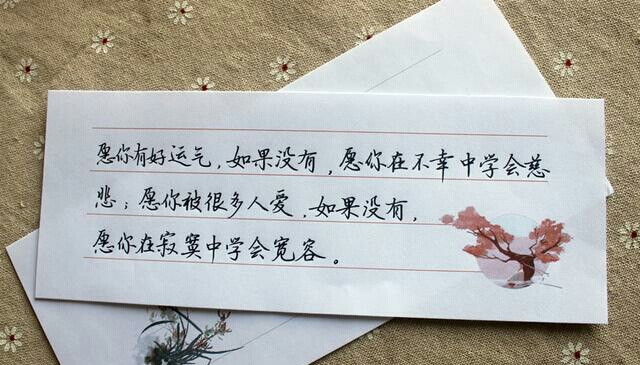 愿你有好运气，如果没有，愿你在不幸中学会慈
悲；愿你被很多人爱，如果没有，
愿你在寂寞中学会宽容。